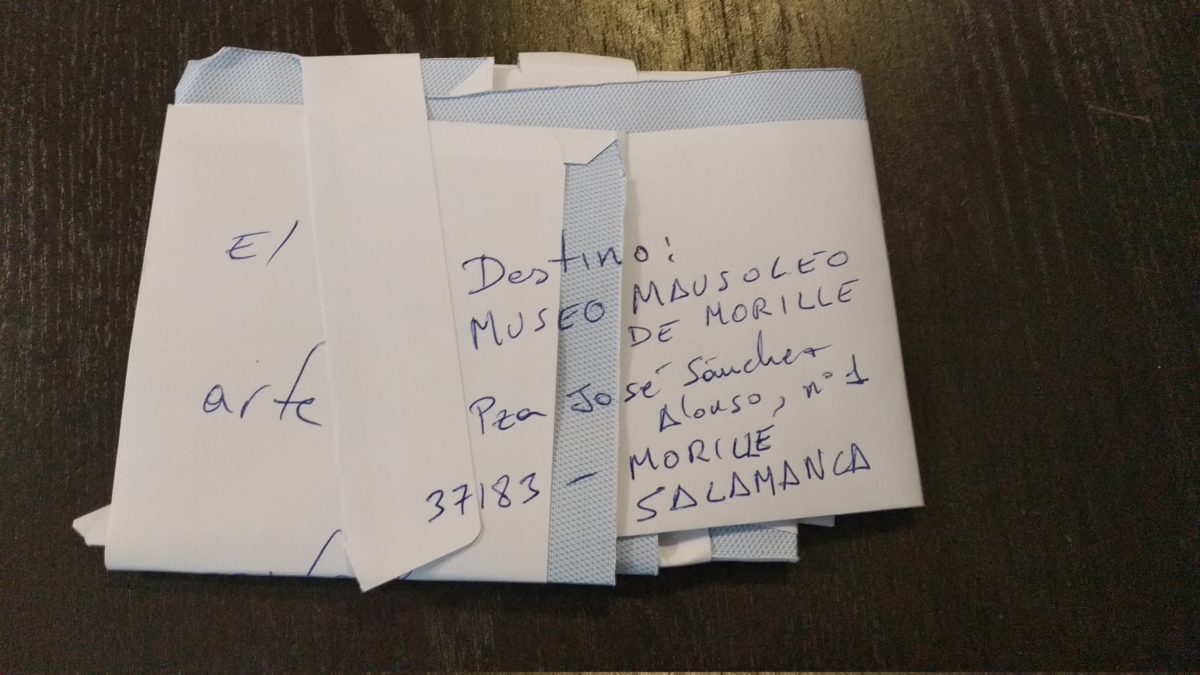 El
arte
Destino:
MUSEO MAUSOLEO
DE MORILLE
Pza José Sánchez
Alonso, nº 1
37183 - MORILLE
SALAMANCA